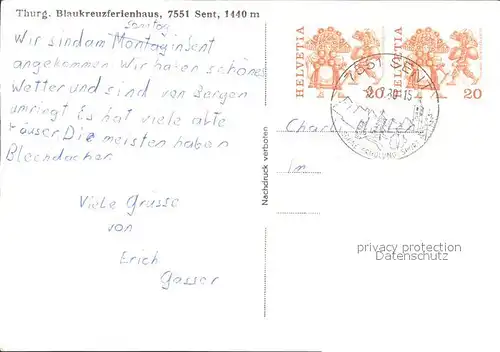 Thurg. Blaukreuzferienhaus, 7551 Sent, 1440 m
Sontag
Wir sind am Montag in Sent
angekommen Wir haben schönes
Wetter und sind von Bergen
umringt Es hat viele alte
Häuser Die meisten haben
Blechdächer
Viele Grüsse
von
Erich
Gasser
Nachdruck verboten
HELVETIA
20
HELVETIA
20
7551 SENT
Charl
Im
privacy protection
Datenschutz